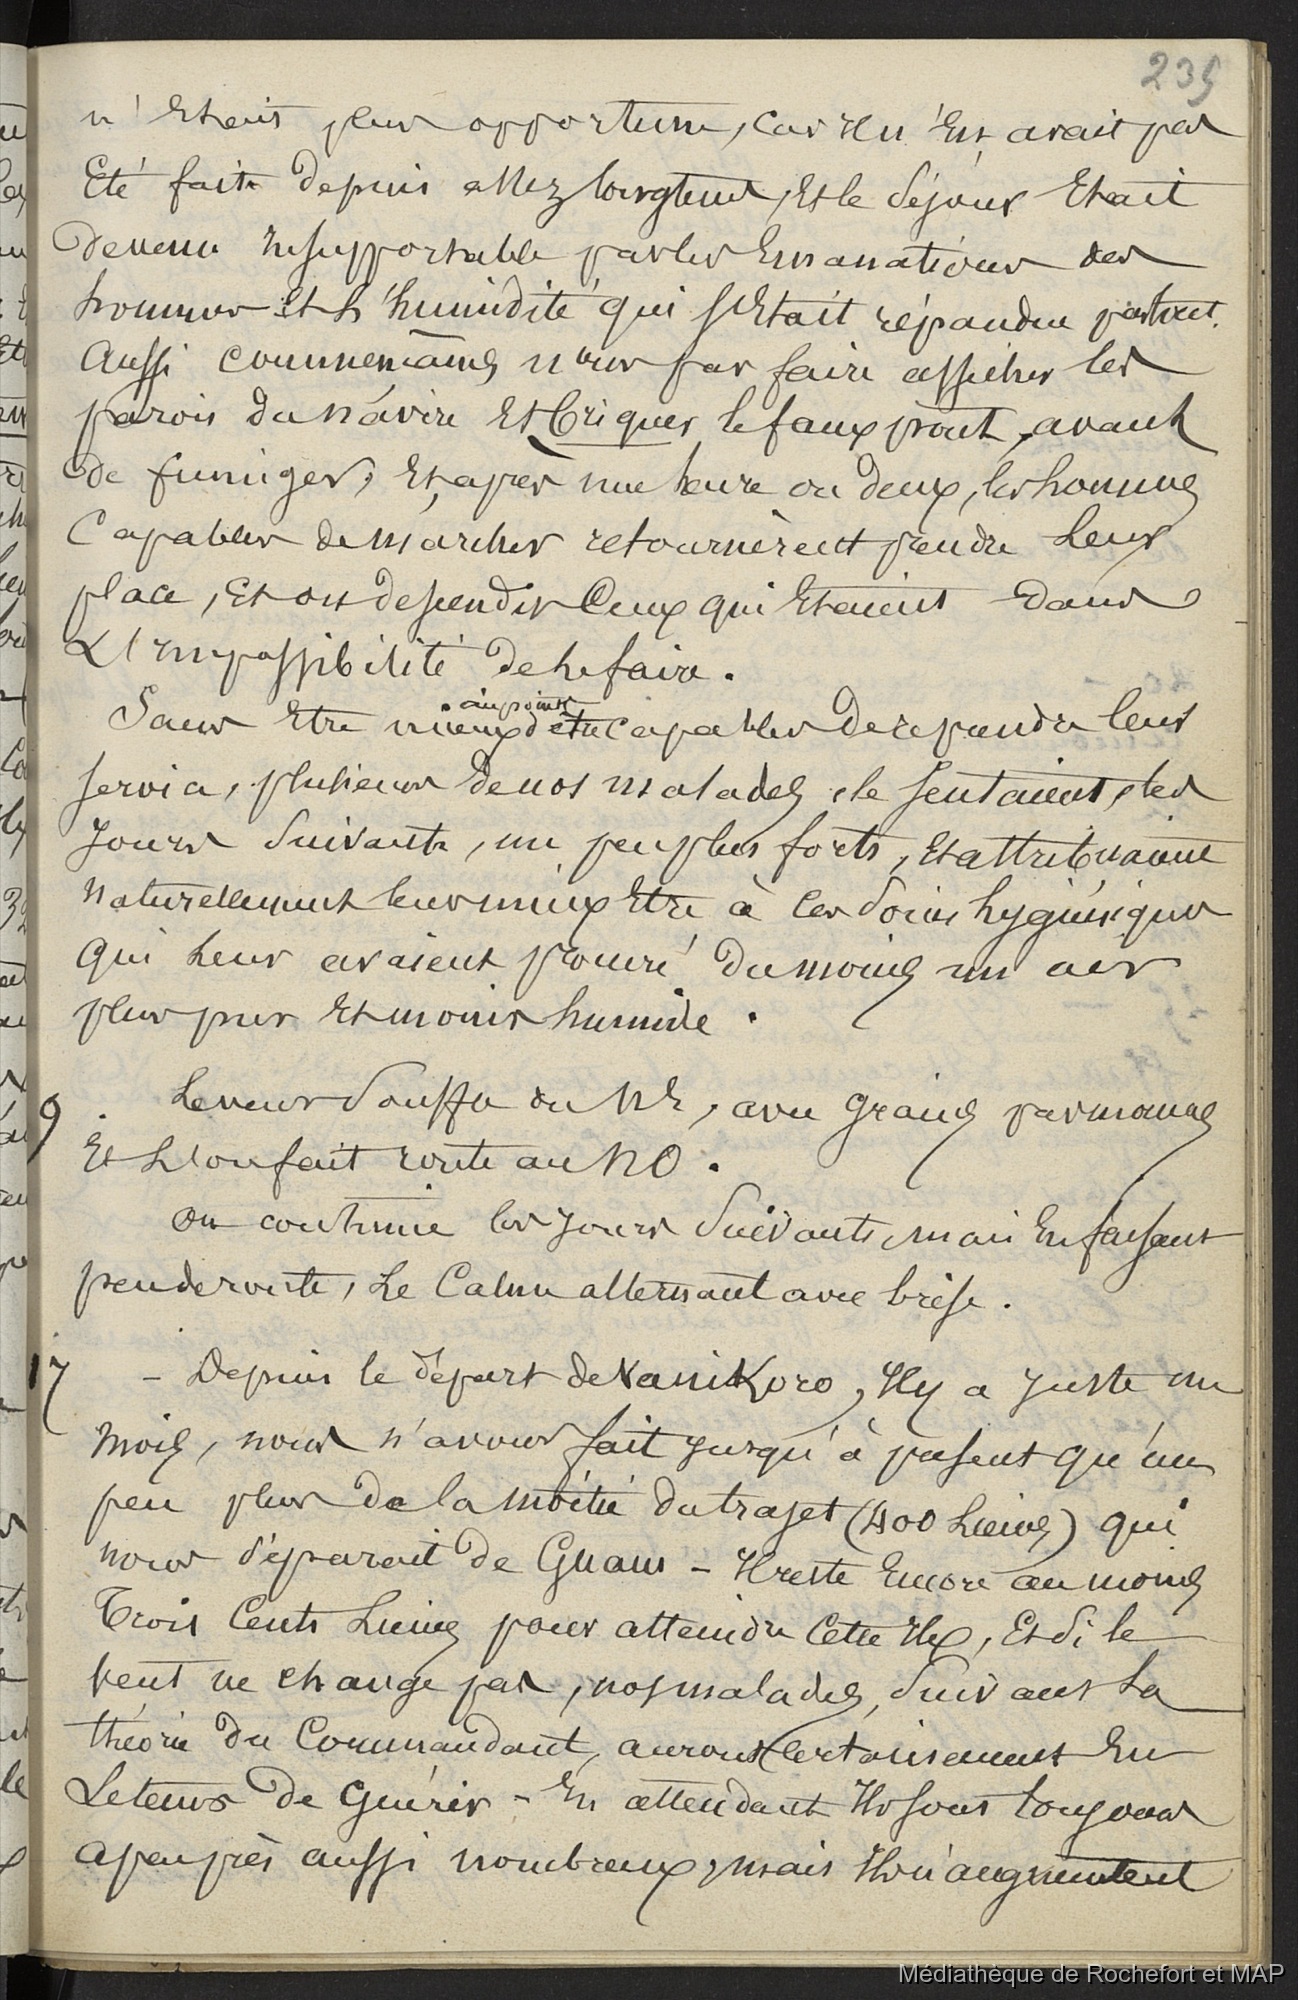 235
n'était plus opportune, car il n'en avait pas
été faite depuis assez longtems, et le séjour était
devenu insupportable par les émanations des
hommes et l'humidité qui s'était répandue partout.
Aussi commençâmes nous par faire assécher les
parois du navire et briquer le faux pont, avant
de fumiger, et après une heure ou deux, les hommes
capables de marcher retournèrent prendre leur
place, et on descendit ceux qui étaient dans
l'impossibilité de le faire.
Sans être mieux au point d'être capables de reprendre leur
service, plusieurs de nos malades, se sentaient, les
jours suivants, un peu plus forts, et attribuaient
naturellement leur mieux être à ces soins hygiéniques
qui leur avaient procuré du moins un air
plus pur et moins humide.
9. Le vent souffle du NE, avec grains par momens
et l'on fait route au NO.
On continue les jours suivants, mais en faisant
peu de route, le calme alternant avec brise.
17 - Depuis le départ de Vanikoro, il y a juste un
mois, nous n'avons fait jusqu'à présent qu'un
peu plus de la moitié du trajet (400 lieues) qui
nous séparait de Guam - Il reste encore au moins
trois cents lieues pour atteindre cette île, et si le
vent ne change pas, nos malades, suivant la
théorie du Commandant, auront certainement eu
le tems de guérir - En attendant ils sont toujours
à peu près aussi nombreux, mais ils n'augmentent
Médiathèque de Rochefort et MAP